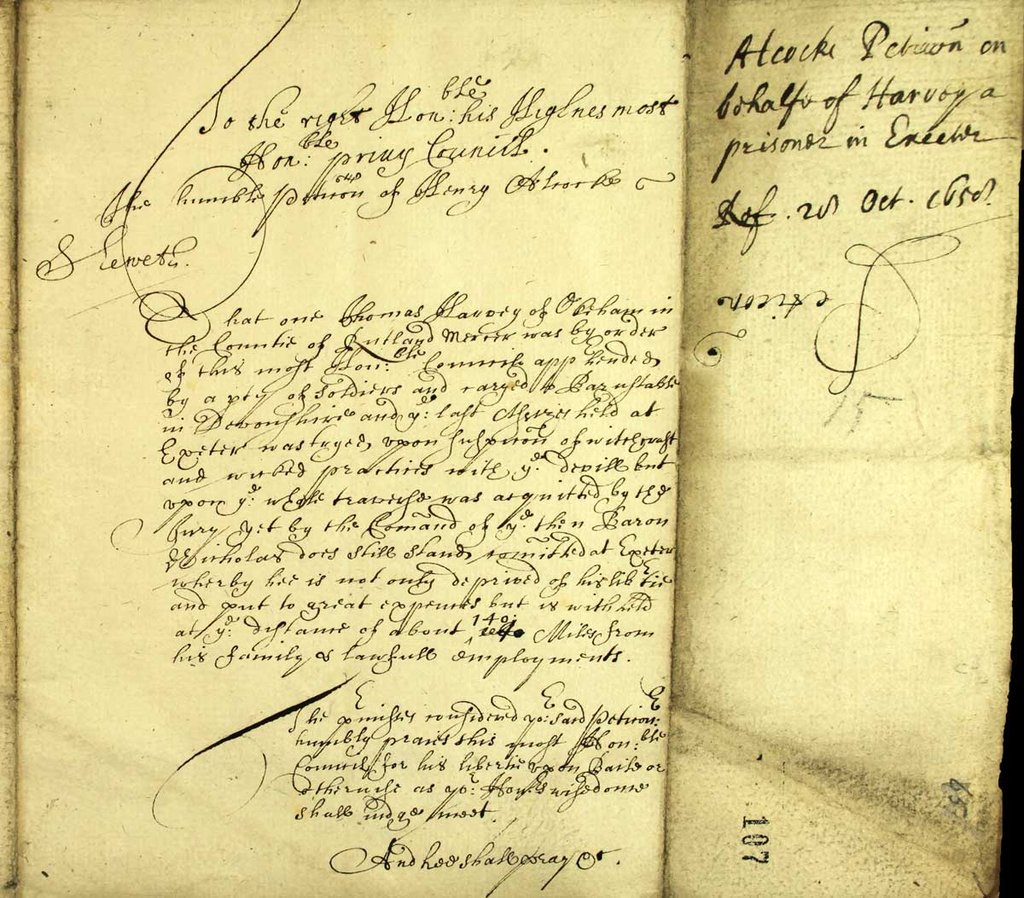 To the right Hon:ble his Highnes most
Hon:ble privy Councill.
The humble peticon of Henry Alcocke
Sheweth.
That one Thomas Harvey of Okeham in
the Countie of Rutland Mercer was by order
of this most Hon:ble Councill app'hended
by a pty of Soldiers and caryed to Barnstable
in Devonshire and ye: last Assizes held at
Exeter was tryed, upon suspicon of witchcraft
and wicked practices with ye: devill but
upon ye: whole traverse was acquitted by the
Jury yet by the Comand of ye: then Baron
Nicholas does still stand comitted at Exeter
wherby hee is not only deprived of his libtie
and put to great expences but is with held
at ye: distance of about 140: Miles from
his family & lawfull employments.
The p'misses considered yo:r said Peticon:er
humbly praies this most Hon:ble
Councill for his libertie upon Baile or
otherwise as yo:r Hono:rs wisedome
shall judge meet.
And hee shall pray &c.
Alcocke Peticon on
behalfe of Harvey a
prisoner in Exeter
Ref. 28 Oct. 1658
Peticon
15
107